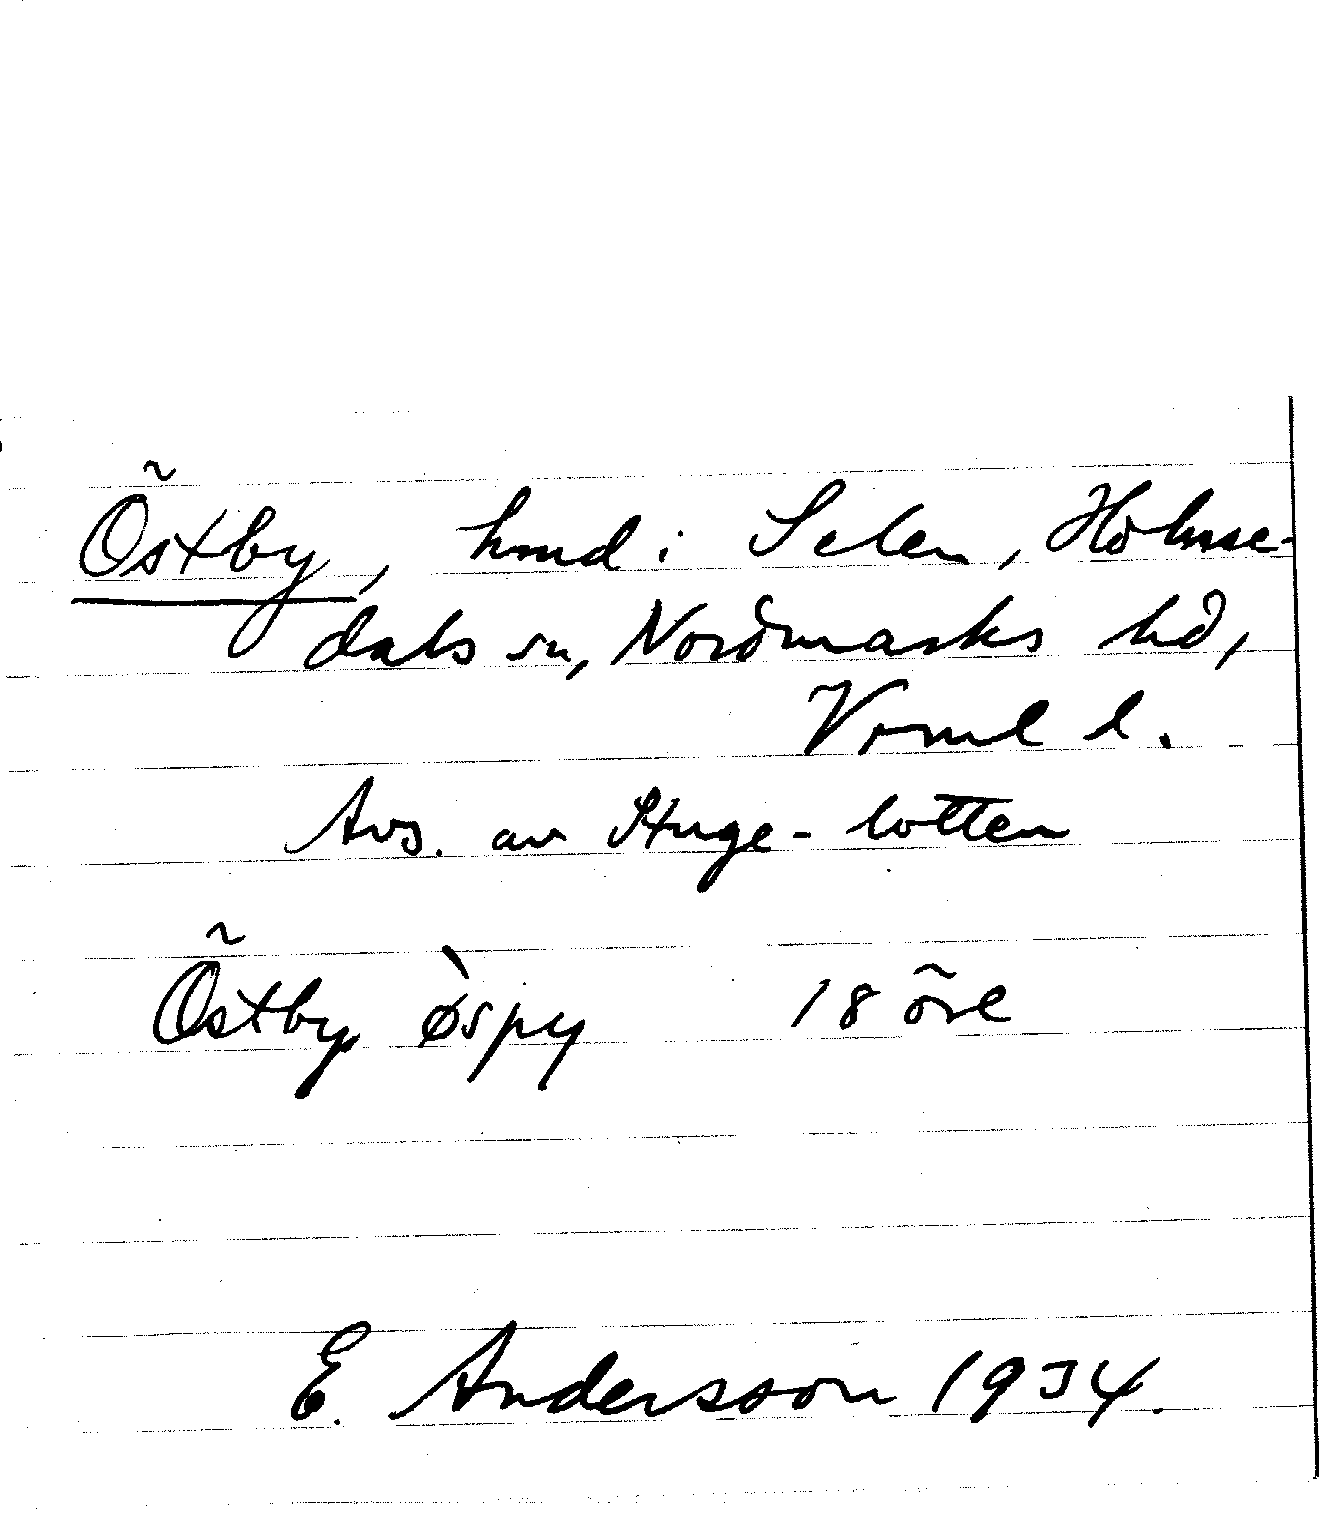 Östby, hmd i Selen, Holmse-
dals sn, Nordmarks hd,
Värml l.
Avs. av Stuge-lotten
Östby øspy 18 öre
E. Andersson 1934.